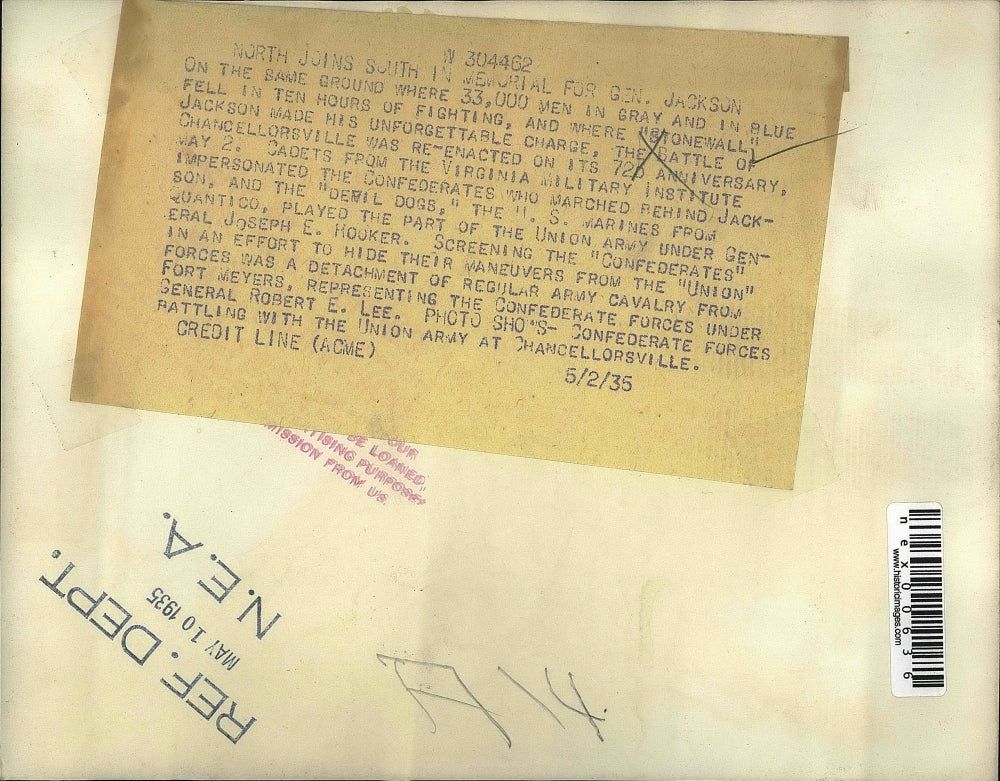 W 304462
NORTH JOINS SOUTH IN MEMORIAL FOR GEN. JACKSON
ON THE SAME GROUND WHERE 33,000 MEN IN GRAY AND IN BLUE
FELL IN TEN HOURS OF FIGHTING, AND WHERE "STONEWALL"
JACKSON MADE HIS UNFORGETTABLE CHARGE, THE BATTLE OF
CHANCELLORSVILLE WAS RE-ENACTED ON ITS 72D ANNIVERSARY,
MAY 2. CADETS FROM THE VIRGINIA MILITARY INSTITUTE
IMPERSONATED THE CONFEDERATES WHO MARCHED BEHIND JACK-
SON, AND THE "DEVIL DOGS," THE U. S. MARINES FROM
QUANTICO, PLAYED THE PART OF THE UNION ARMY UNDER GEN-
ERAL JOSEPH E. HOOKER. SCREENING THE "CONFEDERATES"
IN AN EFFORT TO HIDE THEIR MANEUVERS FROM THE "UNION"
FORCES WAS A DETACHMENT OF REGULAR ARMY CAVALRY FROM
FORT MEYERS, REPRESENTING THE CONFEDERATE FORCES UNDER
GENERAL ROBERT E. LEE. PHOTO SHOWS- CONFEDERATE FORCES
BATTLING WITH THE UNION ARMY AT CHANCELLORSVILLE.
CREDIT LINE (ACME)
5/2/35
OUR
BE LOANED,
TISING PURPOSES
MISSION FROM US.
REF. DEPT.
MAY 10 1935
N.E.A.
nex00636
www.historicimages.com